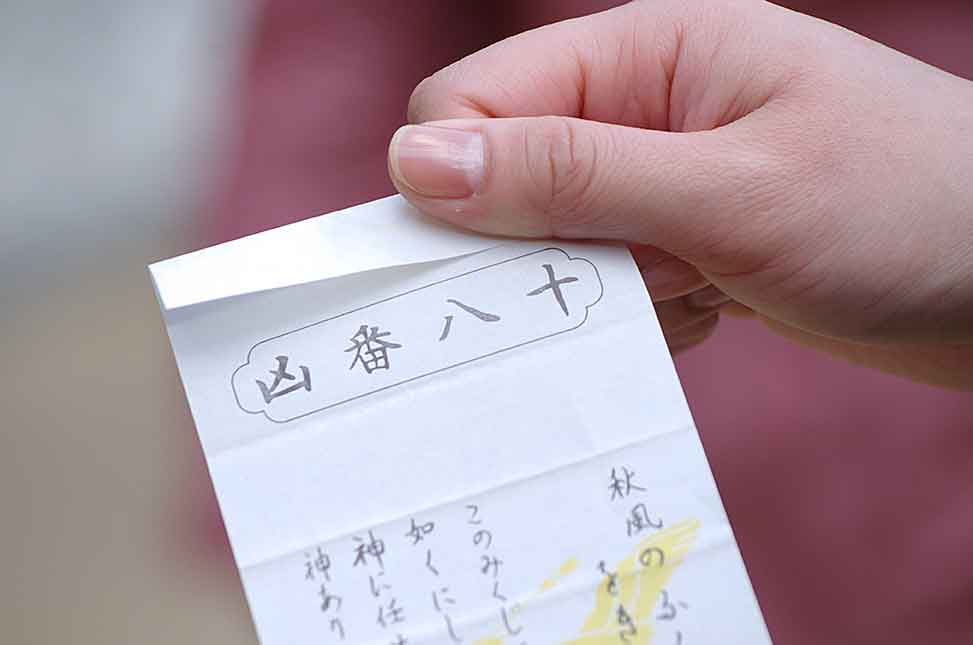 十八番凶
秋風の
このみくじ
如くにし
神に任
神あり